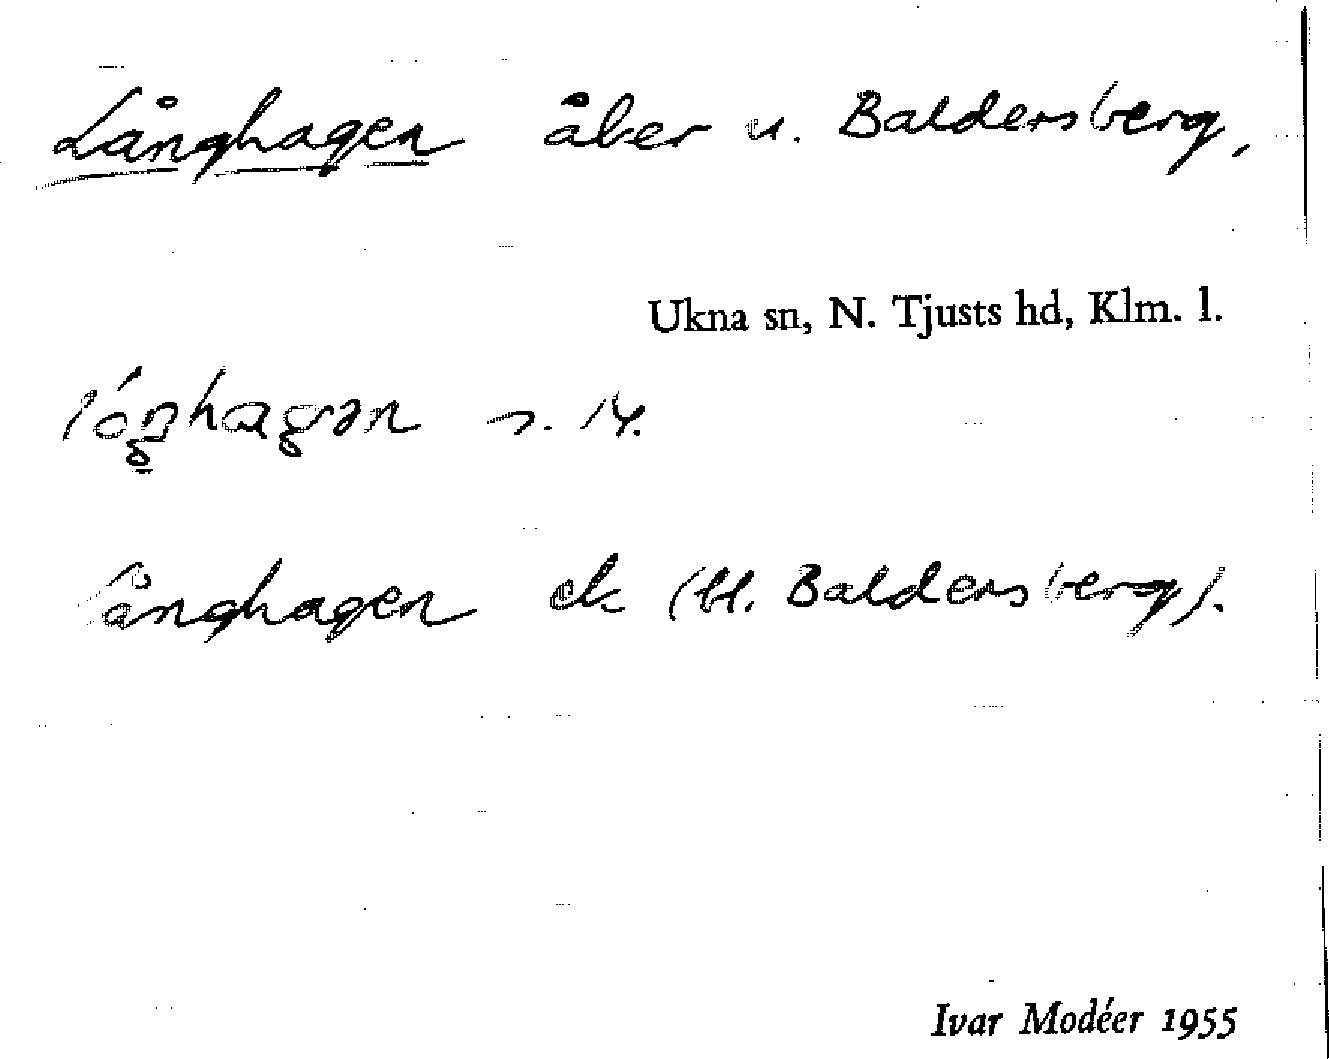 Långhagen åker u. Baldersberg,
Ukna sn, N. Tjusts hd, Klm. l.
s. 14.
Långhagen ek (bl. Baldersberg).
Ivar Modéer 1955